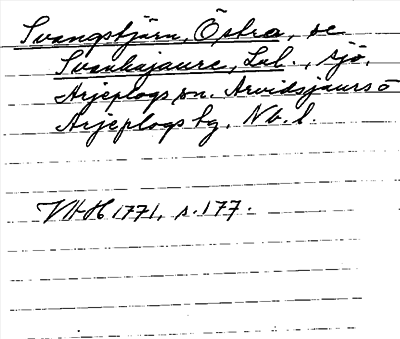 Svangstjärn, Östra, se
Svankajaure, Lul., sjö,
Arjeplogs sn. Arvidsjaurs o
Arjeplogs tg. Nb. l.
VHH 1771, s. 177.